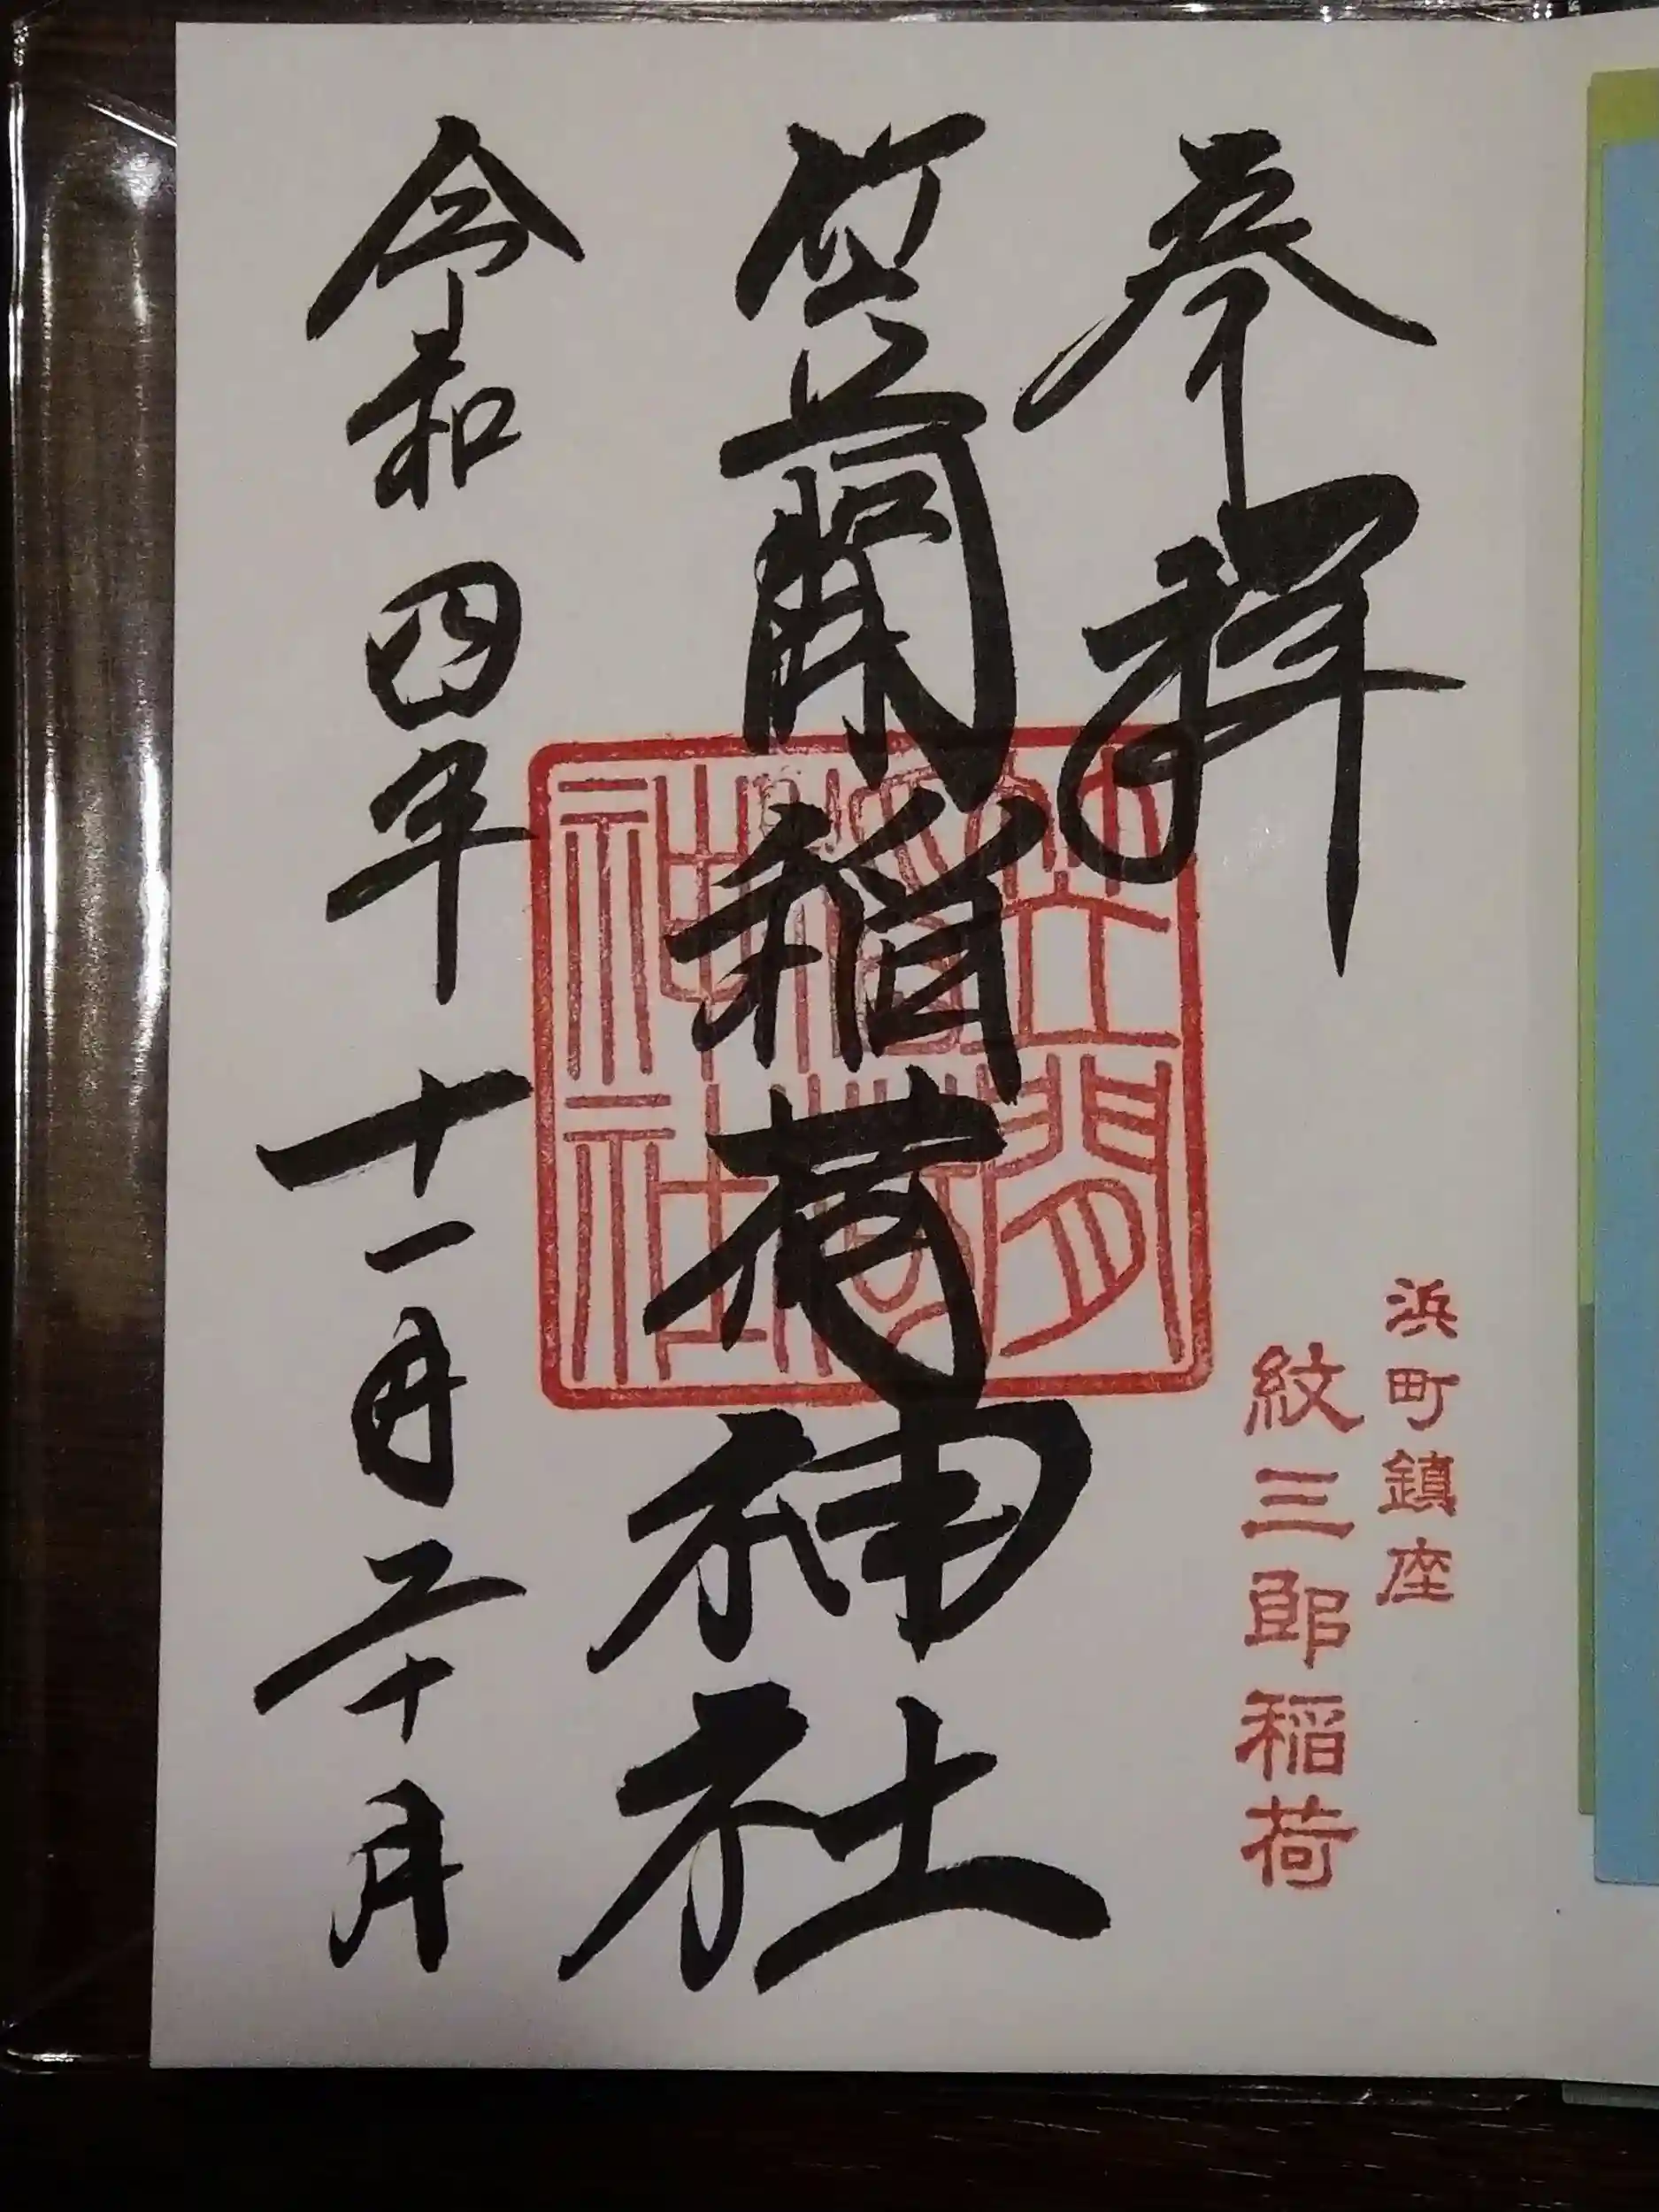 奉拝
浜町鎮座
紋三郎稲荷
笠間稲荷神社
笠間稲荷神社
令和四年十一月二十日